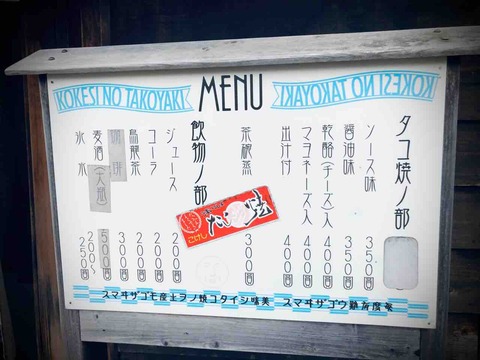 KOKESI NO TAKOYAKI
MENU
KOKESI NO TAKOYAKI
タコ焼ノ部
ソース味 350円
醤油味 350円
乾酪(チーズ)入 400円
マヨネーズ入 400円
出汁付 400円
茶碗蒸 300円
飲物ノ部
ジュース 200円
コーラ 200円
烏龍茶 200円
珈琲 300円
麦酒 500円
氷水 200〜250円
たこ焼
こけし
毎度有難ウゴザヰマス
美味シイタコ焼ノヲ土産モゴザヰマス